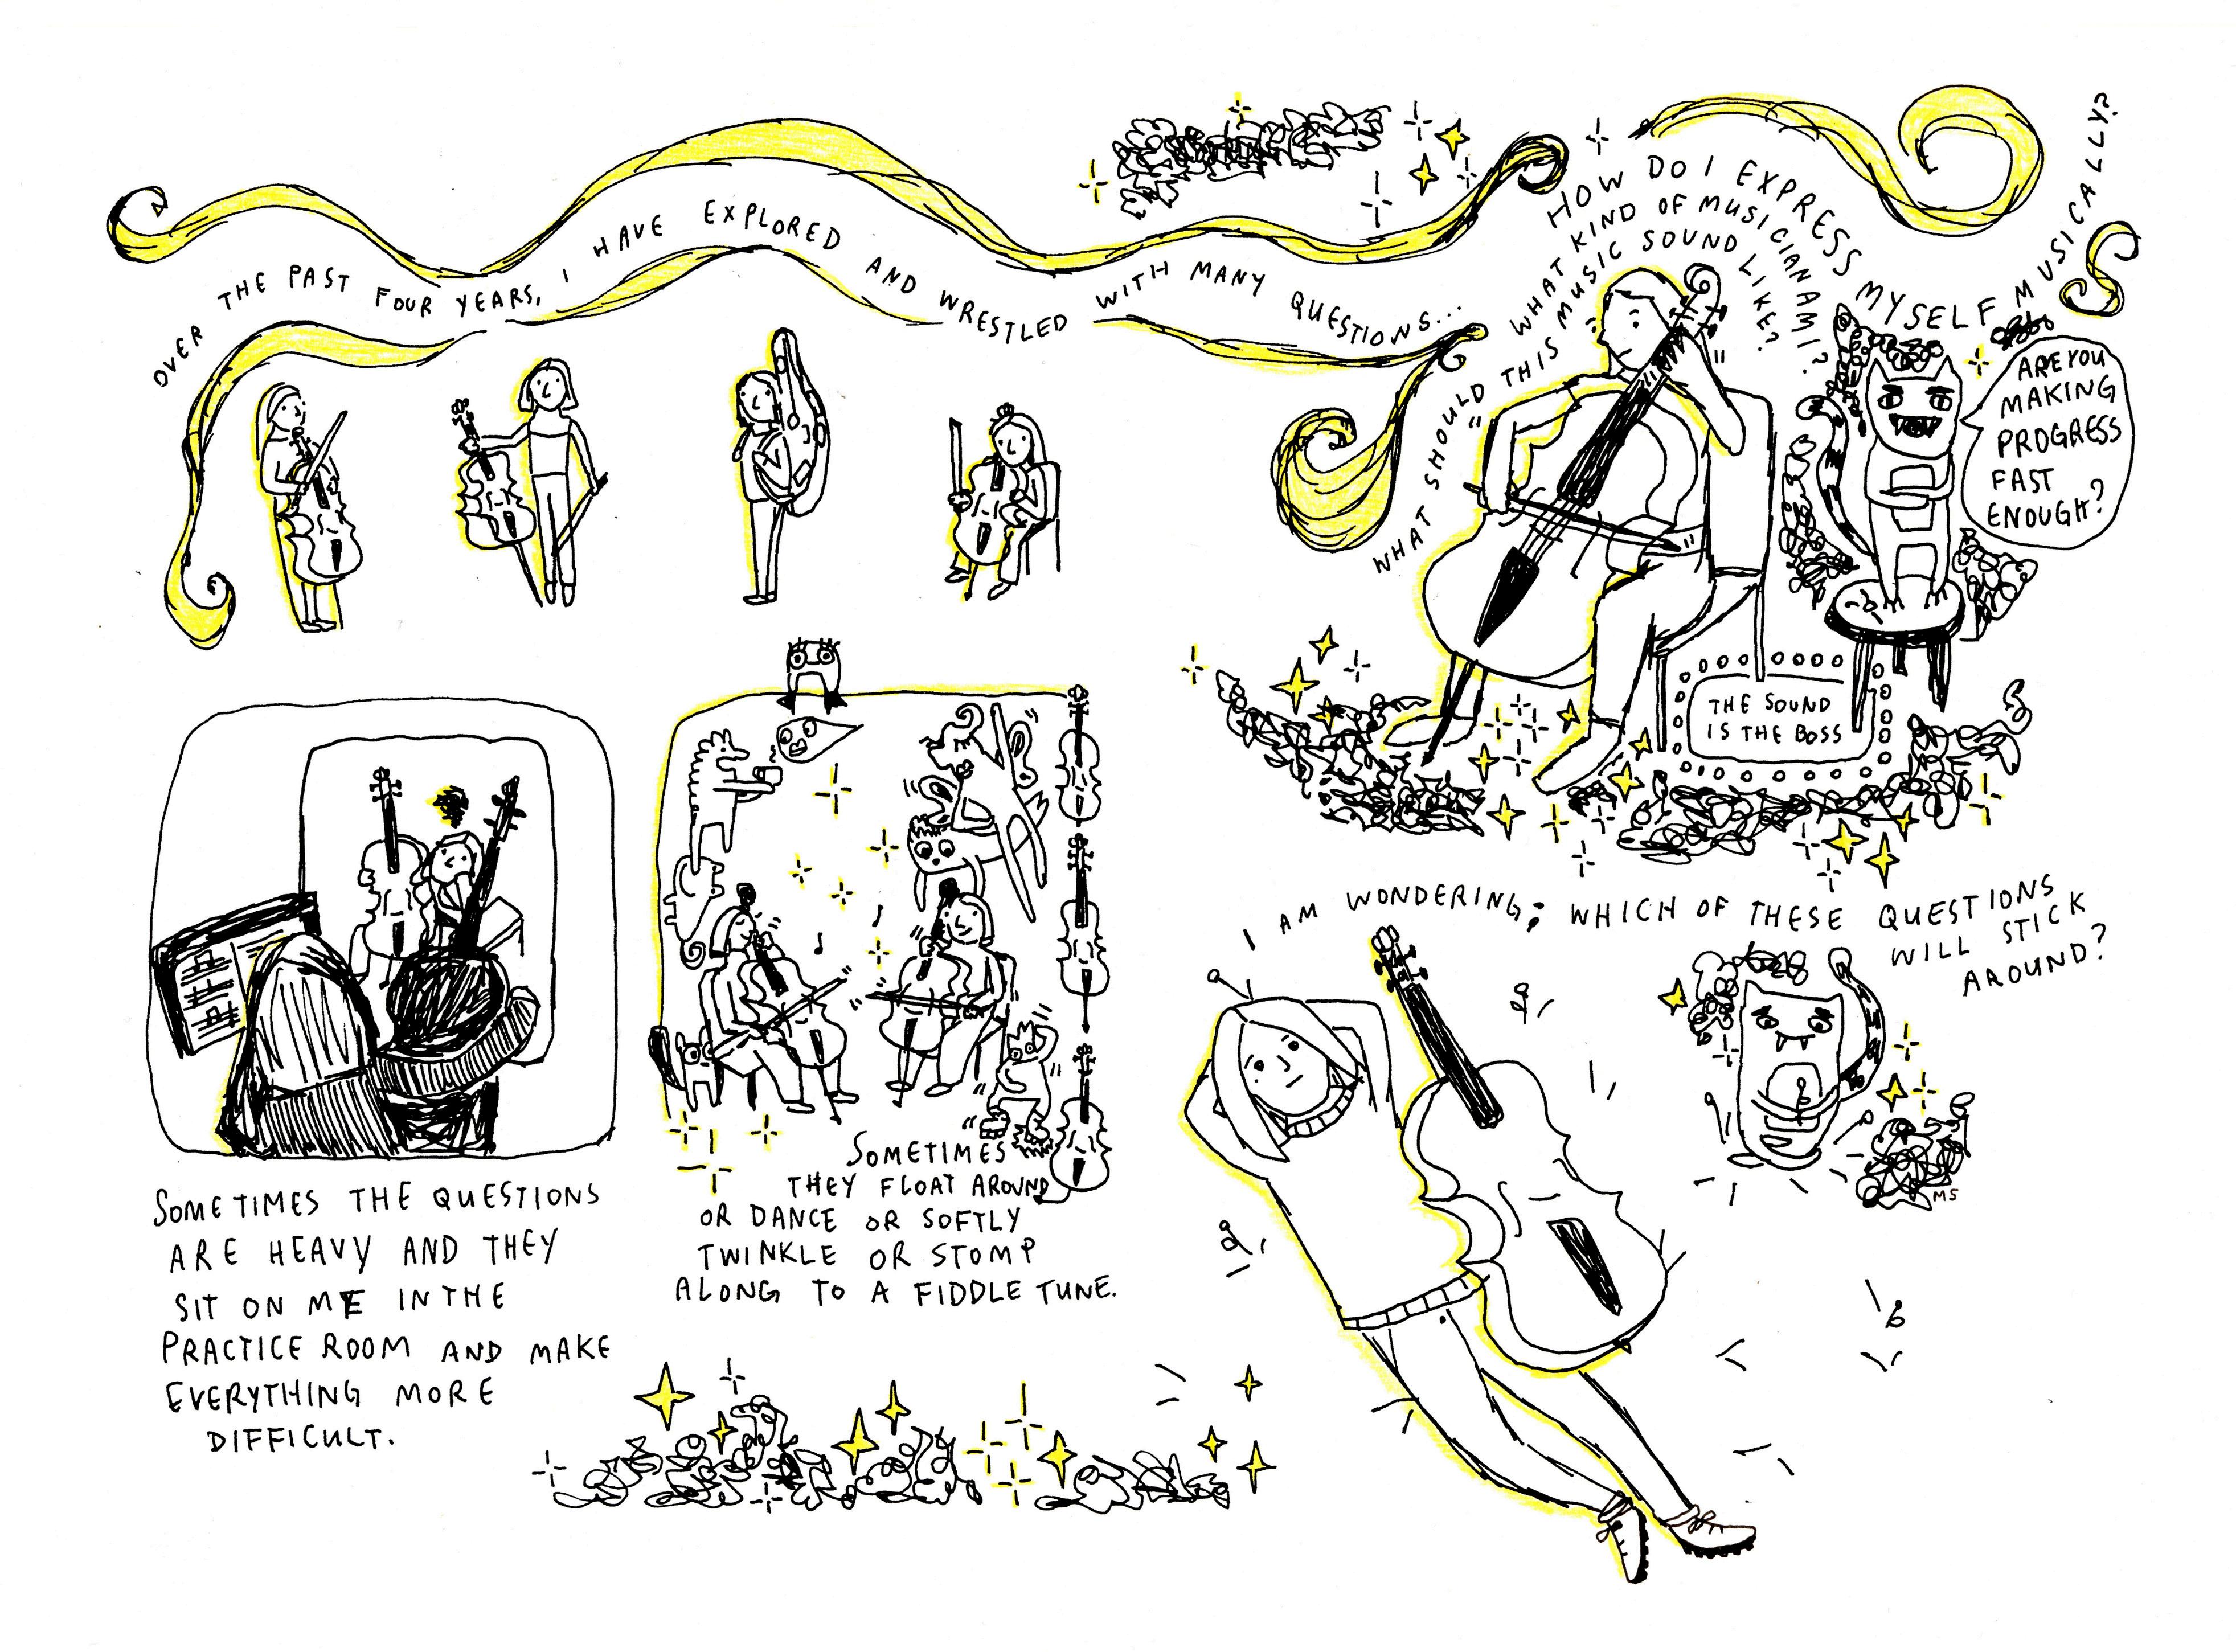 OVER THE PAST FOUR YEARS, I HAVE EXPLORED AND WRESTLED WITH MANY QUESTIONS...
HOW DO I EXPRESS MYSELF MUSICALLY?
WHAT KIND OF MUSICIAN AM I?
WHAT SHOULD THIS MUSIC SOUND LIKE?
ARE YOU
MAKING
PROGRESS
FAST
ENOUGH?
THE SOUND
IS THE BOSS
SOMETIMES THE QUESTIONS
ARE HEAVY AND THEY
SIT ON ME IN THE
PRACTICE ROOM AND MAKE
EVERYTHING MORE
DIFFICULT.
SOMETIMES
THEY FLOAT AROUND
OR DANCE OR SOFTLY
TWINKLE OR STOMP
ALONG TO A FIDDLE TUNE.
I AM WONDERING; WHICH OF THESE QUESTIONS
WILL STICK
AROUND?
MS